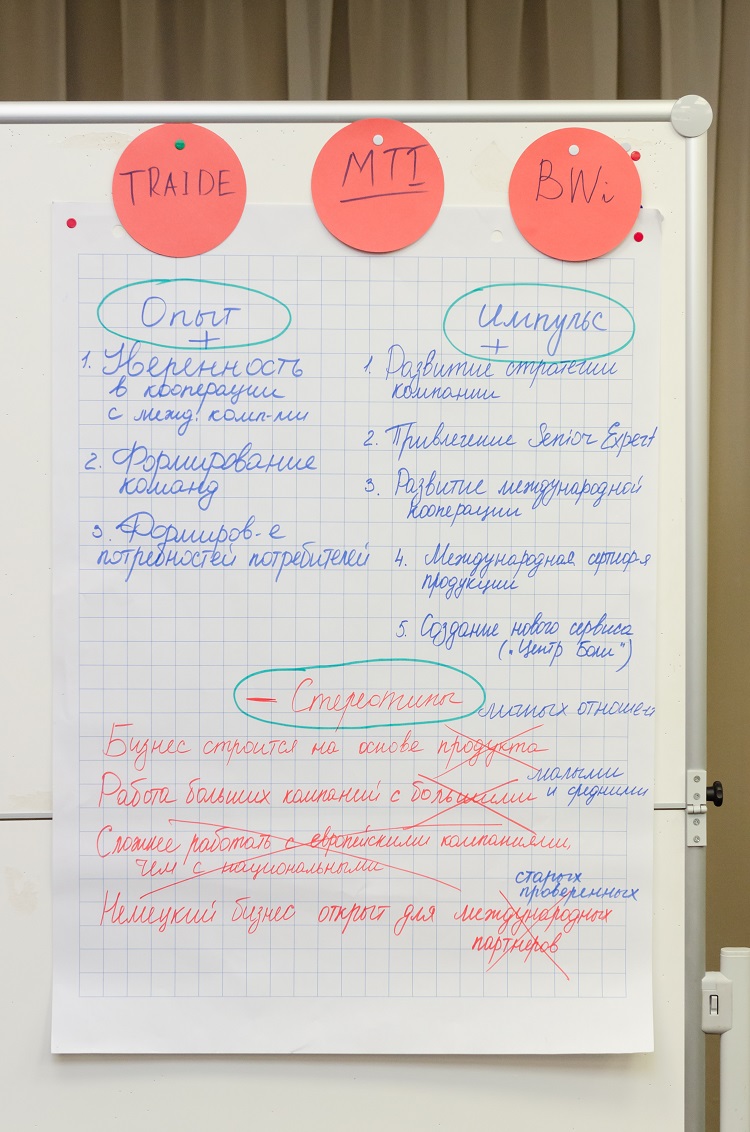 TRAIDE
MTI
BWi
Опыт
+
1. Уверенность
в кооперации
с межд. комп-ми
2. Формирование
команд
3. Формиров-е
потребностей потребителей
Импульс
+
1. Развитие стратегии
компании
2. Привлечение Senior Expert
3. Развитие международной
кооперации
4. Международная сертиф-я
продукции
5. Создание нового сервиса
("Центр Боли")
— Стереотипы
личных отношен
Бизнес строится на основе продукта
малыми
и средними
Работа больших компаний с большими
Сложнее работать с европейскими компаниями,
чем с национальными
старых
проверенных
Немецкий бизнес открыт для международных
партнеров